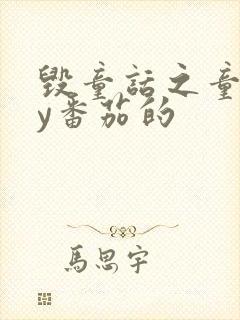 毁童话之童
y番茄的
馬思宇